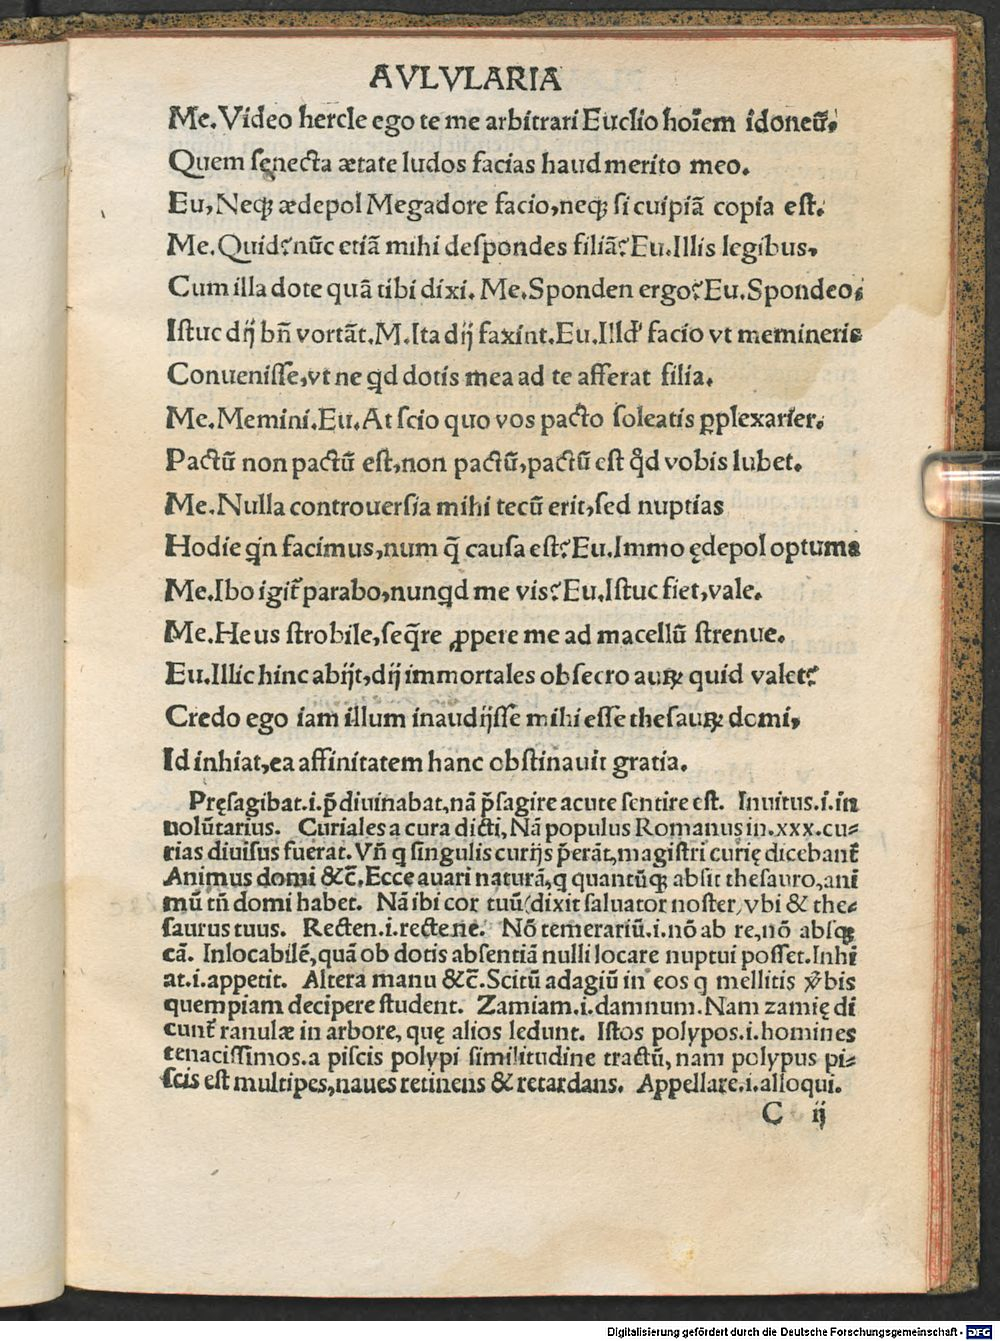 AVLVLARIA
Me. Video hercle ego te me arbitrari Euclio hoīem idoneū.
Quem senecta ætate ludos facias haud merito meo.
Eu, Neqꝫ ædepol Megadore facio, neqꝫ si cuipiā copia est.
Me. Quid? nūc etiā mihi despondes filiā? Eu. Illis legibus,
Cum illa dote quā tibi dixi. Me. Sponden ergo? Eu. Spondeo.
Istuc dij bn̄ vortāt. M. Ita dij faxint. Eu. Illd' facio vt memineris
Conuenisse, vt ne qd dotis mea ad te afferat filia.
Me. Memini. Eu. At scio quo vos pacto soleatis ꝑplexarier.
Pactū non pactū est, non pactū, pactū est qd vobis lubet.
Me. Nulla controuersia mihi tecū erit, sed nuptias
Hodie qn facimus, num q̄ causa est? Eu. Immo ędepol optuma
Me. Ibo igit̄ parabo, nunqd me vis? Eu. Istuc fiet, vale.
Me. Heus strobile, seq̄re ꝓpere me ad macellū strenue.
Eu. Illic hinc abijt, dij immortales obsecro auꝝ quid valet?
Credo ego iam illum inaudijsse mihi esse thesauꝝ domi,
Id inhiat, ea affinitatem hanc obstinauit gratia.
Pręsagibat .i. p̄diuinabat, nā p̄sagire acute sentire est. Inuitus .i. in
uolūtarius. Curiales a cura dicti, Nā populus Romanus in .xxx. cu-
rias diuisus fuerat. Vn̄ q singulis curijs p̄erāt, magistri curię dicebant̄
Animus domi &c̄. Ecce auari naturā, q quantūqꝫ absit thesauro, ani
mū tn̄ domi habet. Nā ibi cor tuū (dixit saluator noster) vbi & the-
saurus tuus. Recten .i. recte ne. Nō temerariū .i. nō ab re, nō absqꝫ
cā. Inlocabilē, quā ob dotis absentiā nulli locare nuptui posset. Inhi
at .i. appetit. Altera manu &c̄. Scitū adagiū in eos q mellitis v̄bis
quempiam decipere student. Zamiam .i. damnum. Nam zamię di
cunt̄ ranulæ in arbore, quę alios ledunt. Istos polypos .i. homines
tenacissimos. a piscis polypi similitudine tractū, nam polypus pi-
scis est multipes, naues retinens & retardans. Appellare .i. alloqui.
C ij
Digitalisierung gefördert durch die Deutsche Forschungsgemeinschaft - DFG